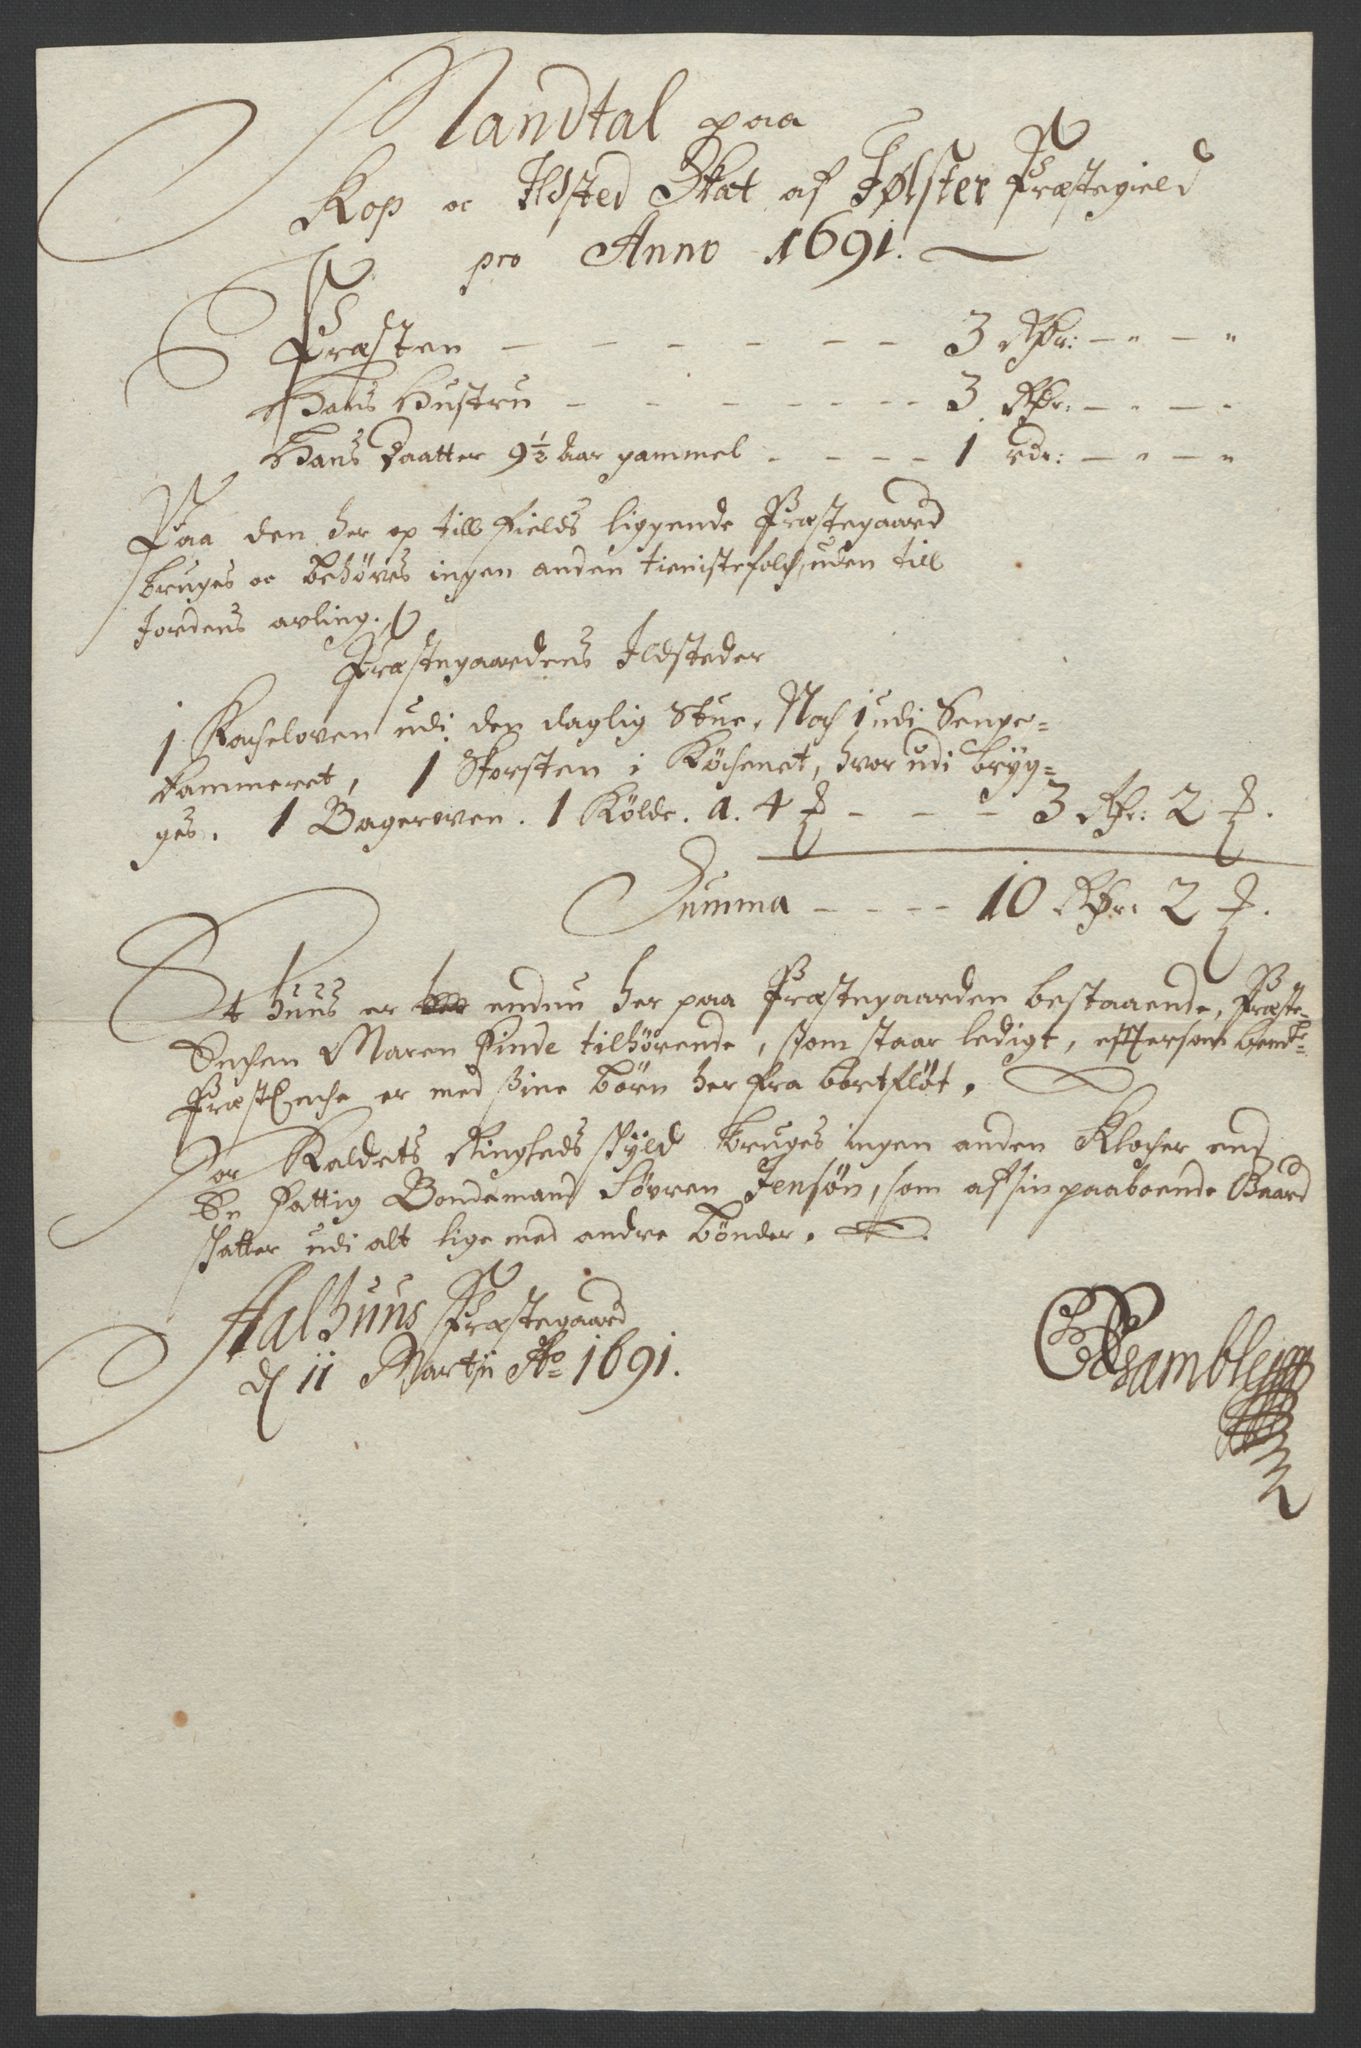 Mandtal paa
Kop oc Ildsted Skat af Jølster Præstegield
pro Anno 1691.
Præsten - - - - - - - 3 Rdr: - " - "
Hans Hustru - - - - - - - 3 Rdr: - - - -
Hans Daatter 9½ Aar gammel - - - - 1 rdr: - " - "
Paa den her op till Fields liggende Præstegaard
bruges oc behøves ingen anden tienistefolch, uden till
Jordens avling.
Præstegaardens Ildsteder
1 Kacheloven udi den daglig Stue, Noch 1 udi Senge-
kammeret, 1 Skorsten i Köchenet, hvor udi bryg-
ges. 1 Bagerowen. 1 Kölde. a. 4 ₰ - - - 3 Rdr: 2 ₰.
Summa - - - - 10 Rdr: 2 ₰.
Et huus er endnu her paa Præstegaarden bestaaende, Præste-
Enchen Maren Finde tilhörende, som staar ledigt, eftersom bemte.
PræstEnche er med sine börn her fra bortfløt.
For Kaldets Ringheds skyld bruges ingen anden Klocher end
En fattig Bondemand Sövren Jensön, som af sin paaboende Gaard
skatter udi alt lige med andre bönder.
Aalhuus Præstegaard
d 11 Martij Ao 1691.